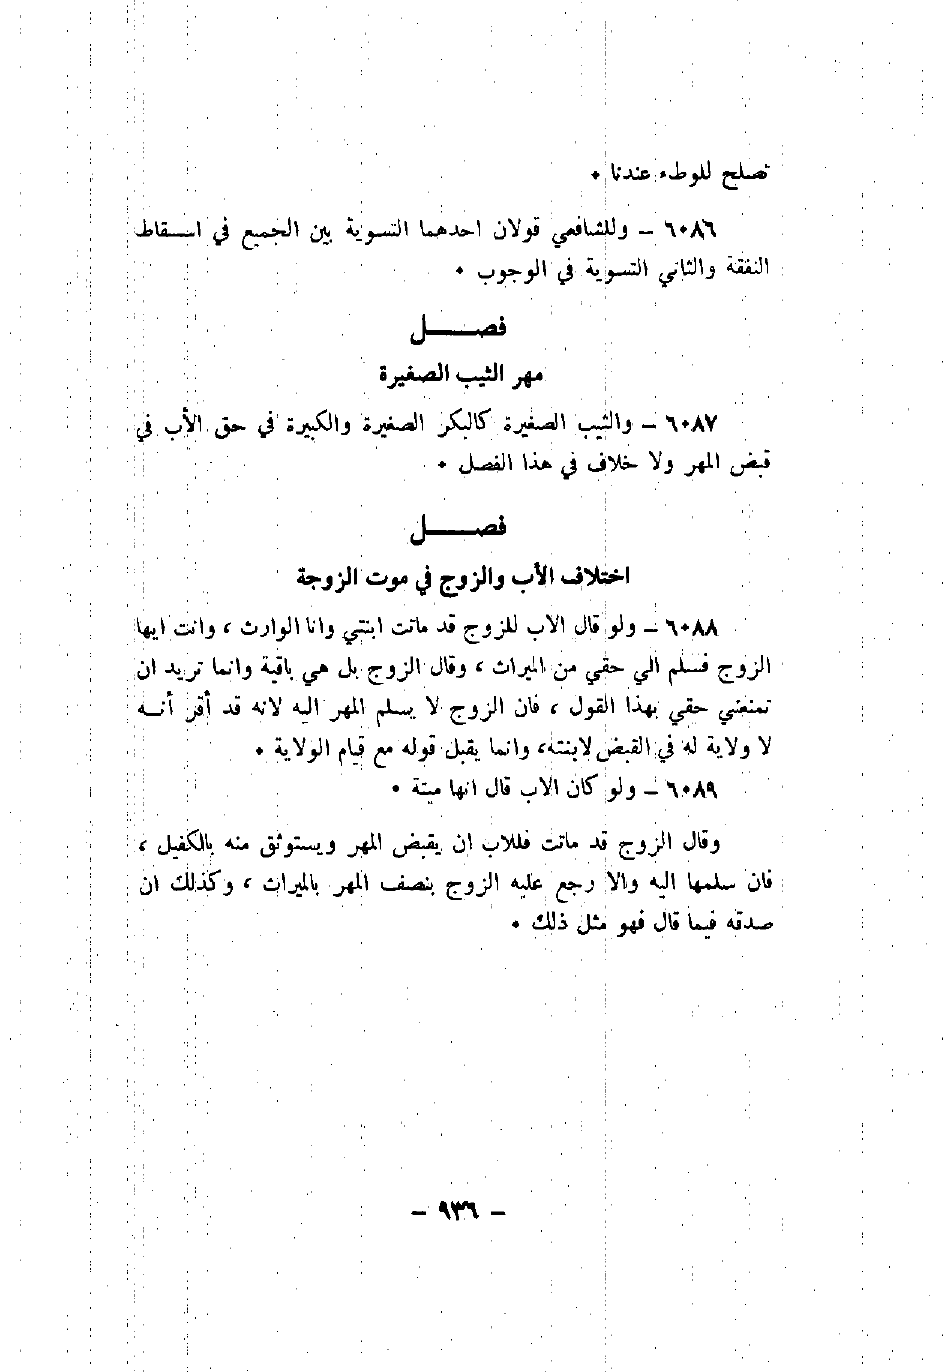 تصلح للوطء عندنا ٠
٦٠٨٦ – وللشافعي قولان احدهما التسوية بين الجميع في اسقاط
النفقة والثاني التسوية في الوجوب ٠
فصل
مهر الثيب الصغيرة
٦٠٨٧ – والثيب الصغيرة كالبكر الصغيرة والكبيرة في حق الأب في
قبض المهر ولا خلاف في هذا الفصل ٠
فصل
اختلاف الأب والزوج في موت الزوجة
٦٠٨٨ – ولو قال الاب للزوج قد ماتت ابنتي وانا الوارث ، وانت ايها
الزوج فسلم الي حقي من الميراث ، وقال الزوج بل هي باقية وانما تريد ان
تمنعني حقي بهذا القول ، فان الزوج لا يسلم المهر اليه لانه قد أقر أنه
لا ولاية له في القبض لابنته، وانما يقبل قوله مع قيام الولاية ٠
٦٠٨٩ – ولو كان الاب قال انها ميتة ٠
وقال الزوج قد ماتت فللاب ان يقبض المهر ويستوثق منه بالكفيل ،
فان سلمها اليه والا رجع عليه الزوج بنصف المهر بالميراث ، وكذلك ان
صدقه فيما قال فهو مثل ذلك ٠
– ٩٣٦ –